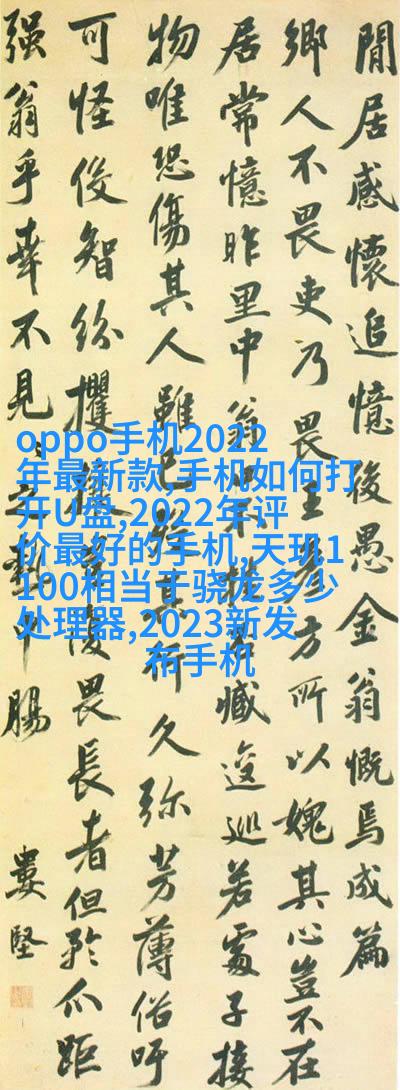 閒居感懷追憶後愚金翁慨焉成篇
鄉人不畏吏乃畏王彥方所以媿其心豈不在
居常憶昨里中翁臧逡巡若處子接
物唯恐傷其人雖已其行久弥芳薄俗吁
可怪俊智紛攫畏長者但矜爪距
强翁乎幸不見之熱中腸
婁堅
oppo手机2022
年最新款,手机如何打
开U盘,2022年评
价最好的手机,天玑1
100相当于骁龙多少
处理器,2023新发
布手机